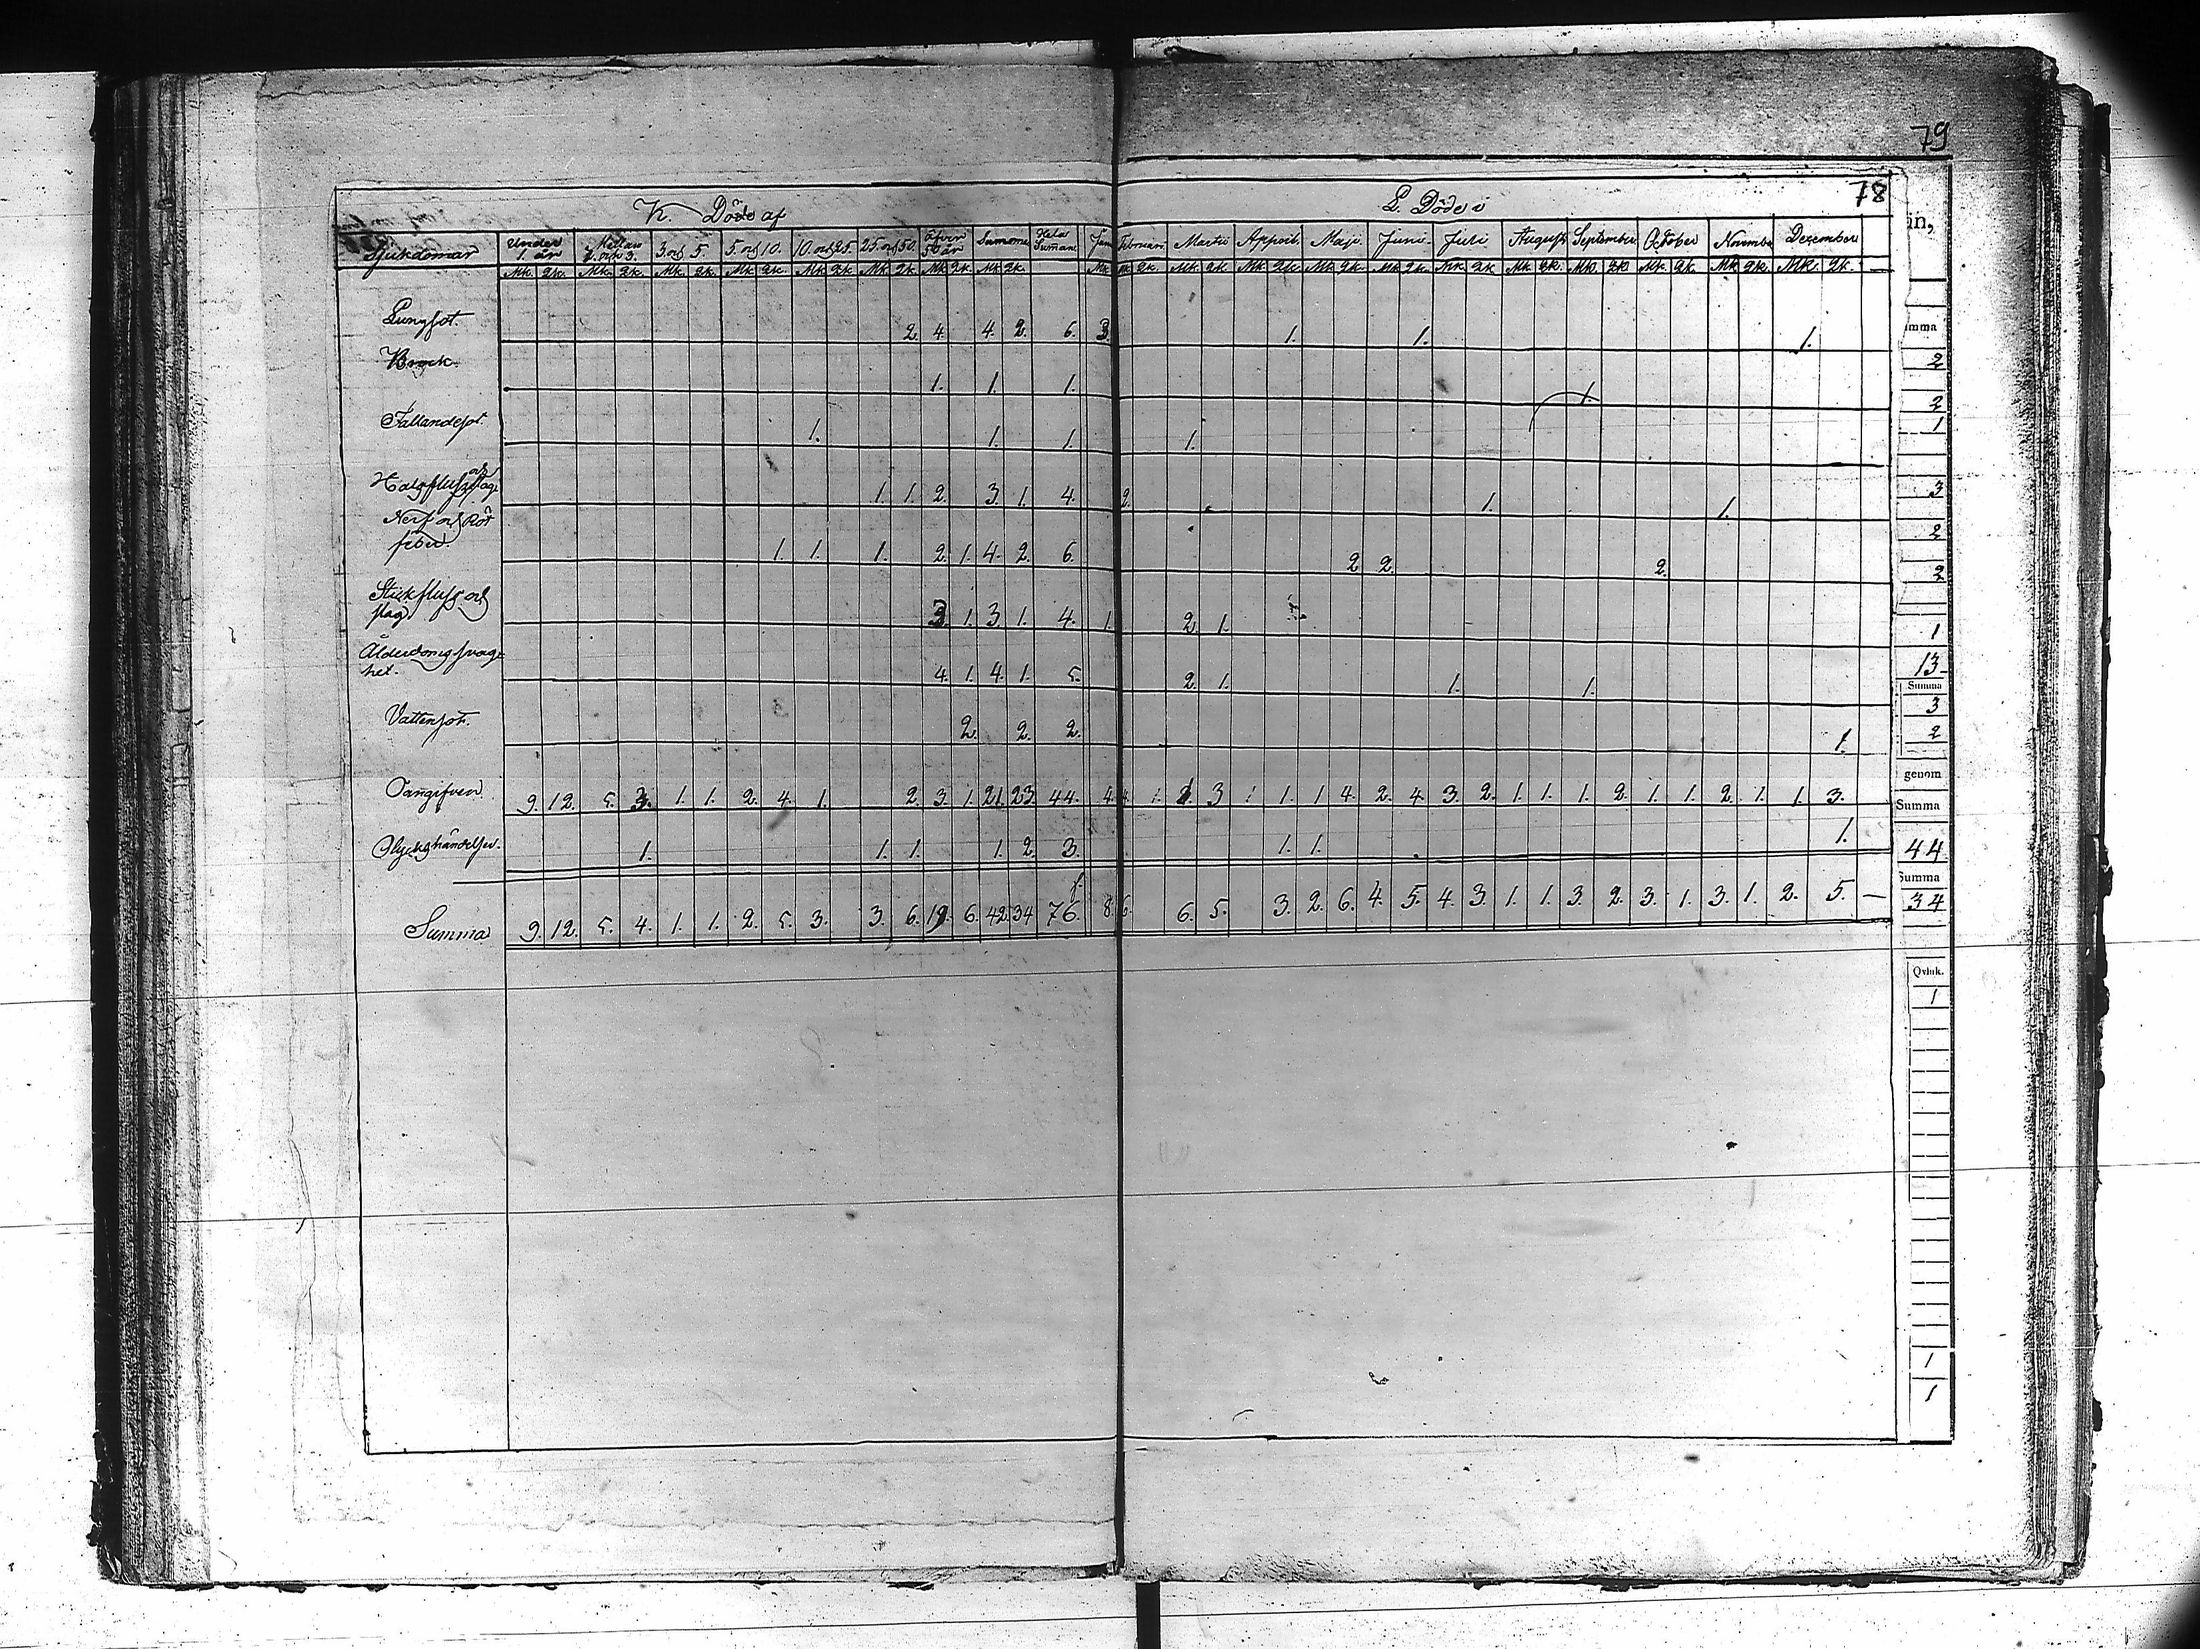 79
78
K. Döde af
L. Döde i
Sjukdomar Under 1. år Mellan 1. och 3. 3. och 5. 5. och 10. 10. och 25. 25. och 50. öfver 50 år Summa Hela Summan Januari Februari Martii Appril Maji Juni Juli Augusti September October November December
Mk. Qk. Mk. Qk. Mk. Qk. Mk. Qk. Mk. Qk. Mk. Qk. Mk. Qk. Mk. Qk. Mk. Mk. Qk. Mk. Qk. Mk. Qk. Mk. Qk. Mk. Qk. Mk. Qk. Mk. Qk. Mk. Qk. Mk. Qk. Mk. Qk. Mk. Qk.
Lungsot. 2. 4. 4. 2. 6. 3. 1. 1. 1.
Bråck. 1. 1. 1. 1.
Fallandesot. 1. 1. 1. 1.
Halsfluss och 1. 1. 2. 3. 1. 4. 2. 1. 1.
Nerf och Röt
feber. 1. 1. 1. 2. 1. 4. 2. 6. 2 2. 2.
Stickfluss och
slag 3. 1. 3. 1. 4. 1. 2. 1.
Ålderdomssvag-
het. 4. 1. 4. 1. 5. 2. 1. 1. 1.
Vattensot. 2. 2. 2. 1.
Oangifven 9. 12. 5. 3. 1. 1. 2. 4. 1. 2. 3. 1. 21. 23. 44. 4. 4. 1. 1. 3 1 1. 1 4. 2. 4. 3. 2. 1. 1. 1. 2. 1. 1. 2. 1. 1. 3.
Olyckshändelser. 1. 1. 1. 1. 2. 3. 1. 1. 1.
Summa 9. 12. 5. 4. 1. 1. 2. 5. 3. 3. 6. 19. 6. 42. 34 76. 8. 6. 6. 5. 3. 2. 6. 4. 5. 4. 3. 1. 1. 3. 2. 3. 1. 3. 1. 2. 5. —
än,
mma
2
2
1
3
2
2
1
13
Summa
3
2
genom
Summa
44
Summa
34
Qvink.
1
1
1